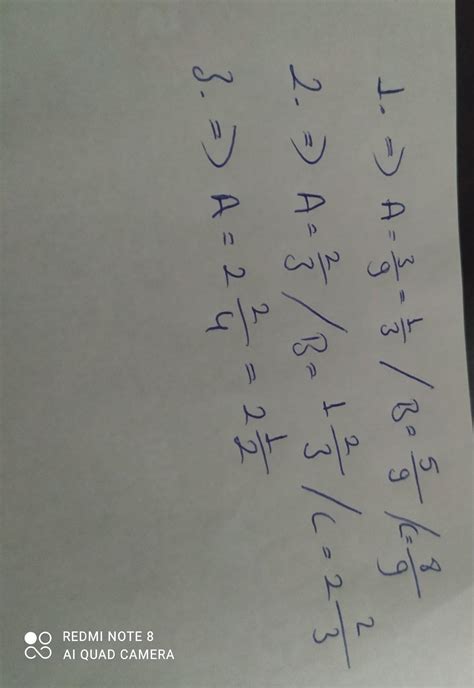 1. => A = 3/9 = 1/3 / B = 5/9 / C = 8/9
2. => A = 2/3 / B = 1 2/3 / C = 2 2/3
3. => A = 2 2/4 = 2 1/2
REDMI NOTE 8
AI QUAD CAMERA